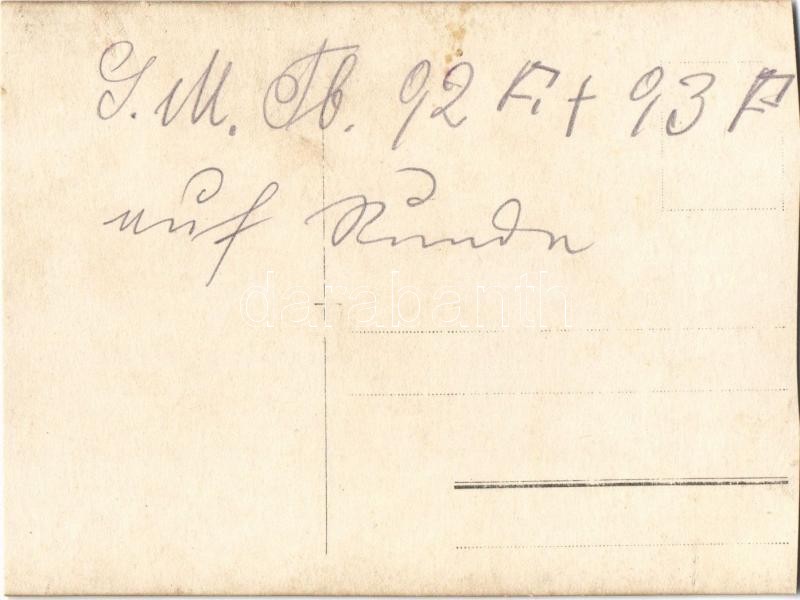 S. M. Tb. 92 F. + 93 F
auf Runde
darabanth